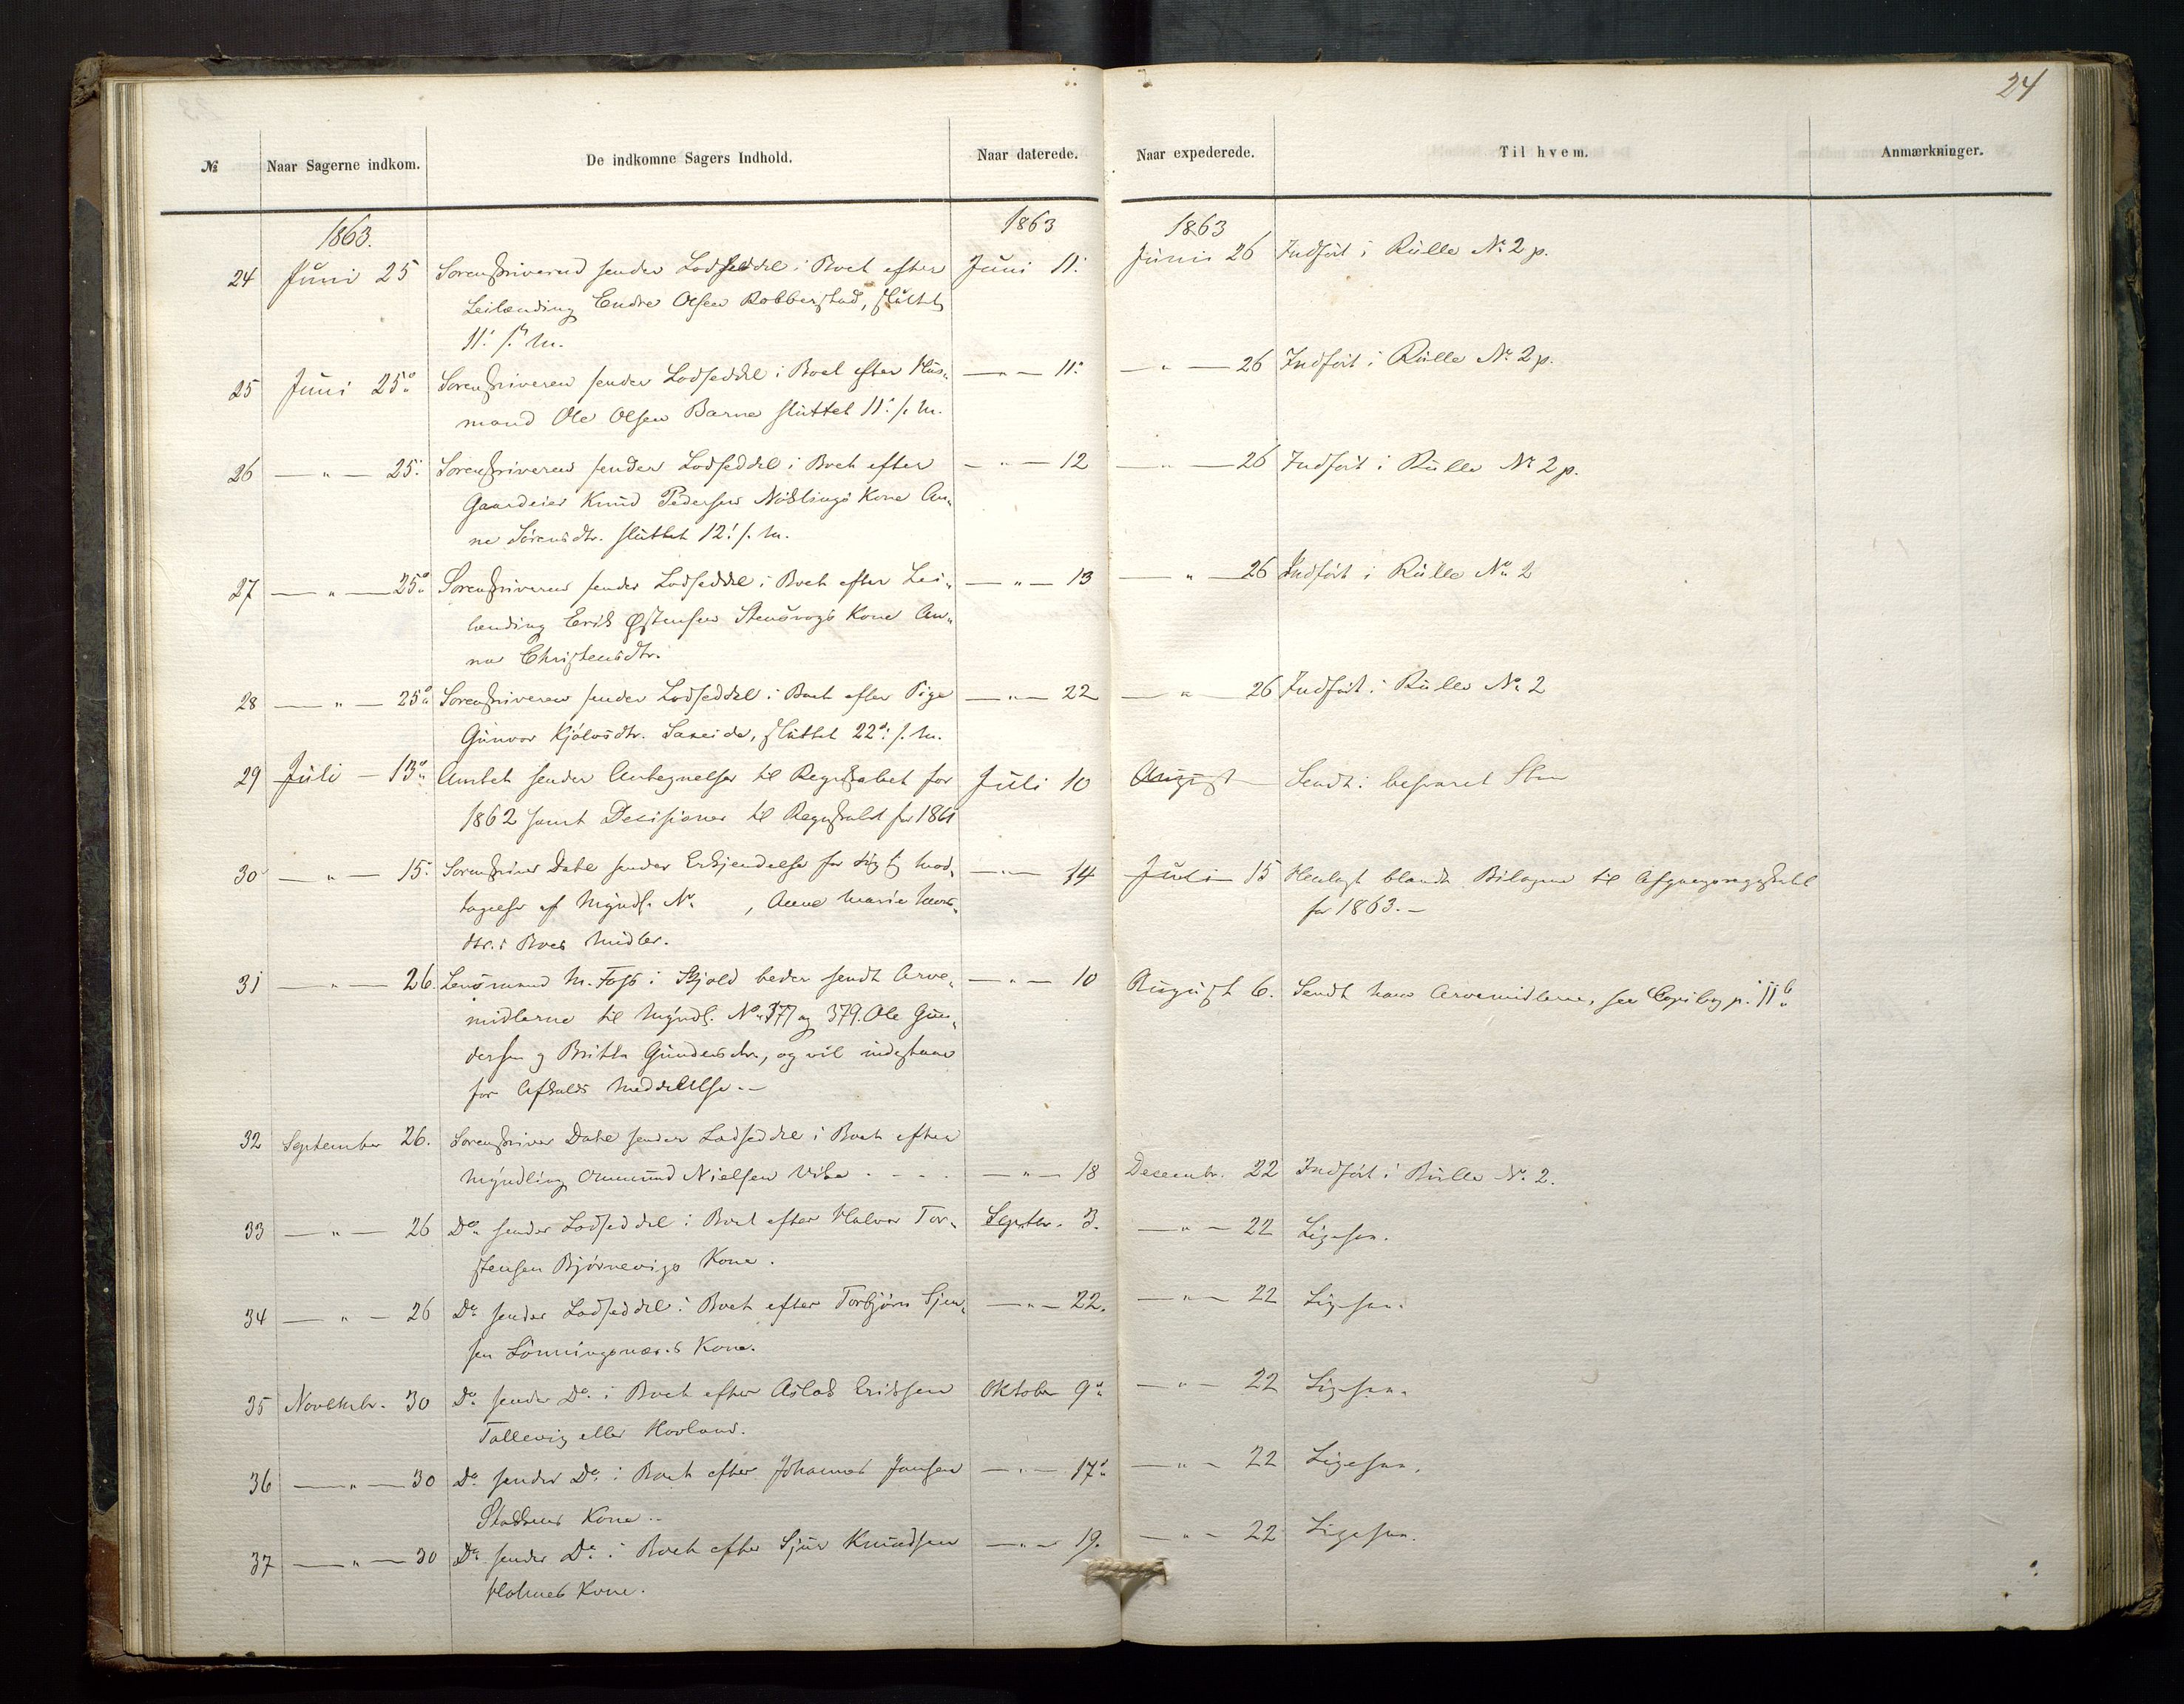 24
№ Naar Sagerne indkom. De indkomne Sagers Indhold. Naar daterede. Naar expederede. Til hvem. Anmærkninger.
1863. 1863 1863
24 Juni 25 Sorenskriverend sender Lodseddel i Boet efter Juni 11. Junii 26 Indført i Rulle No 2 p.
Leilænding Endre Olsen Robberstad, sluttet
11. s. M.
25 Juni 25. Sorenskriveren sender Lodseddel i Boet efter Hus- — " — 11. — " — 26 Indført i Rulle No 2 p.
mand Ole Olsen Barne sluttet 11. s. M.
26 — " — 25. Sorenskriveren sender Lodseddel i Boet efter — " — 12 — " — 26 Indført i Rulle No 2 p.
Gaardeier Knud Pedersen Nøklings Kone An-
ne Sørensdtr. sluttet 12. s. M.
27 — " — 25. Sorenskriveren sender Lodseddel i Boet efter Lei- — " — 13 — " — 26 Indført i Rulle No 2
lænding Erik Østensen Stensvogs Kone An-
na Christensdtr.
28 — " — 25. Sorenskriveren sender Lodseddel i Boet efter Pige — " — 22 — " — 26 Indført i Rulle No 2
Gunvor Kjølvsdtr. Saxeide, sluttet 22. s. M.
29 Juli — 13. Amtet sender Antegnelser til Regnskabet for Juli 10 August Sendt: besvaret
1862 samt Decisioner til Regnskabet for 1861
30 — " — 15. Sorenskriver Dahl sender Erkjendelse for Mod- — " — 14 Juli 15 Henlagt blandt Bilagene til Afgangsregnskabet
tagelse af Myndl. No , Anne Marie
dtr.s Boes Midler. for 1863. —
31 — " — 26. Lensmand M. Foss i Skjold beder sendt Arve- — " — 10 August 6. Sendt ham Arvemidlerne, see Copibog p. 11 b
midlerne til Myndl. No. 377 og 379. Ole Gun-
dersen og Britha Gundersdtr., og vil indestaae
for Afkalds Meddelelse. —
32 September 26. Sorenskriver Dahl sender Lodseddel i Boet efter
Myndling Ommund Nielsen Vike - - - — " — 18 Decembr. 22 Indført i Rulle No. 2.
33 — " — 26 Do. sender Lodseddel i Boet efter Halvor Tor- Septbr. 3. — " — 22 Ligesaa.
stensen Bjørnevigs Kone.
34 — " — 26 Do. sender Lodseddel i Boet efter Torbjørn Sjur- — " — 22. — " — 22 Ligesaa.
sen Lønningsnæs's Kone.
35 Novembr. 30 Do. sender Do. i Boet efter Aslak Eriksen Oktober 9. — " — 22 Ligesaa.
Tallevig eller Hovland.
36 — " — 30 Do. sender Do. i Boet efter Johannes Jansen — " — 17. — " — 22 Ligesaa.
Stoklens Kone.
37 — " — 30 Do. sender Do. i Boet efter Sjur Knudsen — " — 19. — " — 22 Ligesaa.
Holmes Kone.